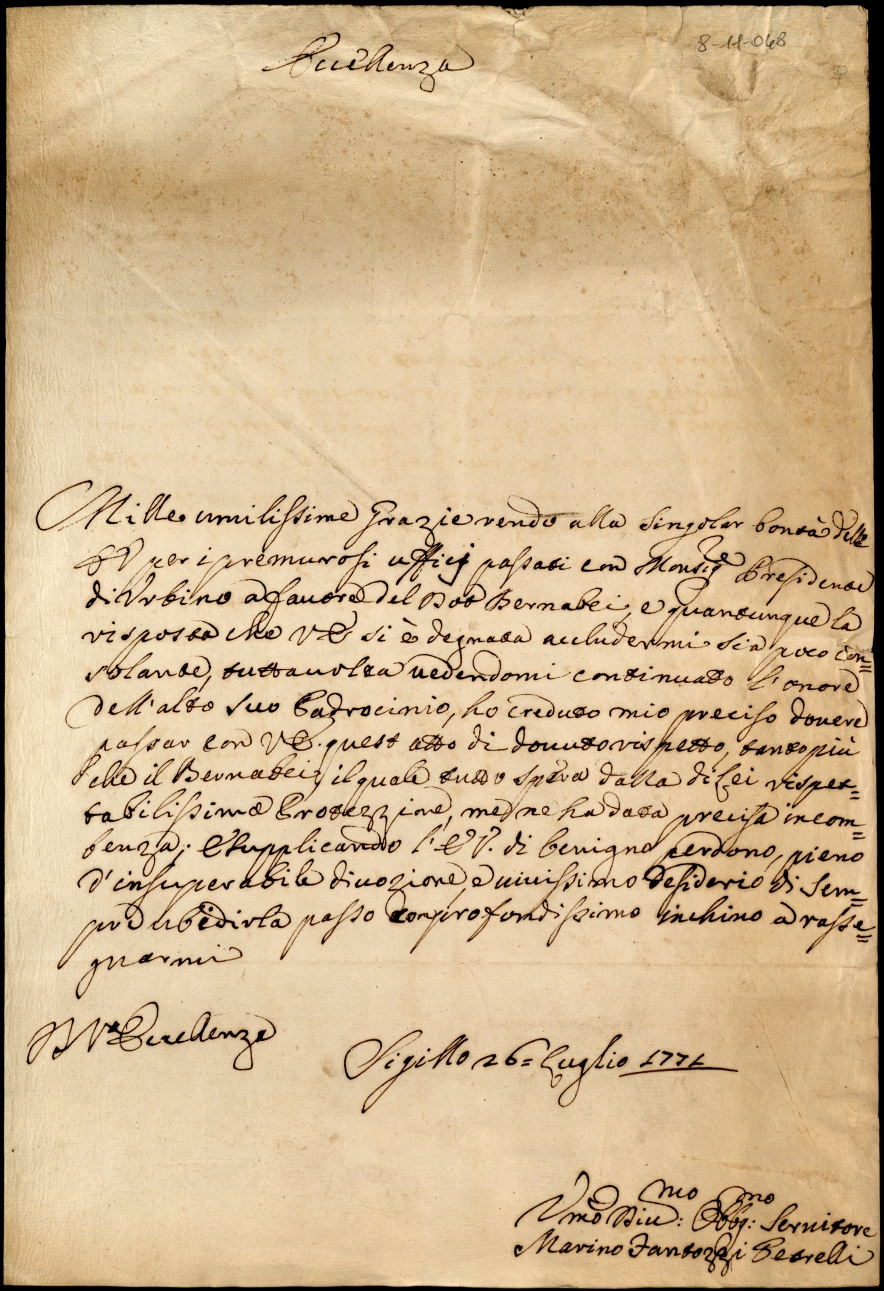 8-11-048
Eccellenza
Mille umilissime Grazie rendo alla singolar bontà dell
E V per i premurosi ufficj passati con Monsig.re Presidente
di Urbino a favore del Dot Bernabei, e quantunque la
risposta che V E si è degnata accludermi sia poco con=
solante, tuttavolta vedendomi continuato l'onore
dell'alto suo Padrocinio, ho creduto mio preciso dovere
passar con V E. quest atto di dovuto rispetto, tanto più
che il Bernabei, il quale tutto spera dalla di Lei rispet=
tabilissima Protezzione, me ne ha data precisa incom=
benza; E supplicando l'E V. di benigno perdono, pieno
d'insuperabile divozione, e vivissimo desiderio di sem=
pre ubèdirla passo con profondissimo inchino a rasse=
gnarmi
D V.a Eccellenza
Sigillo 26= Luglio 1771
Vmo Div:mo Obbg:mo Servitore
Marino Fantozzi Petrelli